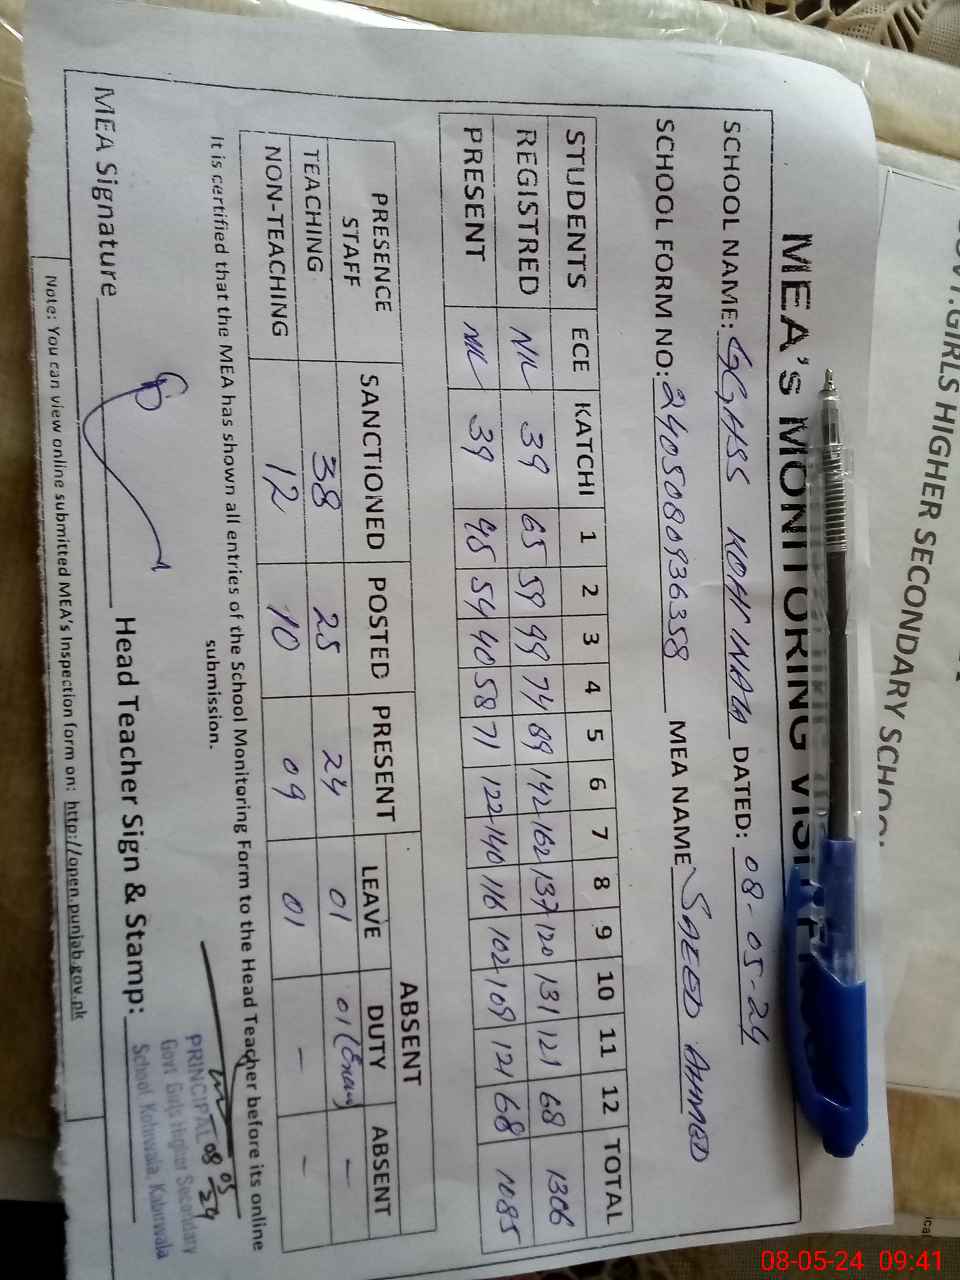 GOVT.GIRLS HIGHER SECONDARY SCHOOL
MEA's MONITORING VISIT
SCHOOL NAME: GGHSS KOHI WALA DATED: 08-05-24
SCHOOL FORM NO: 2405080936358 MEA NAME SAEED AHMED
STUDENTS ECE KATCHI 1 2 3 4 5 6 7 8 9 10 11 12 TOTAL
REGISTRED NIL 39 65 59 99 74 89 142 162 137 120 131 121 68 1306
PRESENT NIL 39 45 54 40 58 71 122 140 116 102 109 121 68 1085
PRESENCE STAFF SANCTIONED POSTED PRESENT ABSENT
LEAVE DUTY ABSENT
TEACHING 38 25 24 01 01 (Exam) -
NON-TEACHING 12 10 09 01 - -
It is certified that the MEA has shown all entries of the School Monitoring Form to the Head Teacher before its online
submission.
08 05 24
PRINCIPAL
Govt. Girls Higher Secondary
School, Kohiwala, Kabirwala
MEA Signature Head Teacher Sign & Stamp:
Note: You can view online submitted MEA's Inspection form on: http://open.punjab.gov.pk
08-05-24 09:41